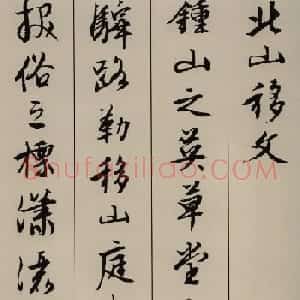 北山移文
鍾山之英草堂
驛路勒移山庭
拔俗之標瀟灑
shufaziliao.com